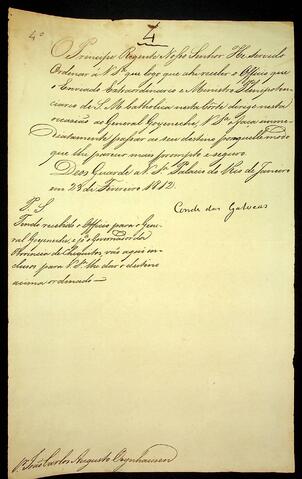 4º
4
O Principe Regente Nosso Senhor He servido
Ordenar á V. Sª que logo que ahi receber o Officio que
o Enviado Extraordinario e Ministro Plenipoten-
ciario de S. M. Catholica nesta Corte dirige nesta
occasião ao General Goyeneche, V. Sª faça imme-
diatamente passar ao seu destino por aquelle modo
que lhe parecer mais prompto e seguro.
Deos Guarde a V. Sª Palacio do Rio de Janeiro
em 28 de Fevereiro 1812
Conde das Galveas
P. S.
Tendo recebido o Officio para o Gene-
ral Goyeneche, e pª o Governador da
Provincia de Chiquitos, vão aqui in-
clusos para V. Sª lhe dar o destino
acima ordenado
Sr. João Carlos Augusto Oeynhausen